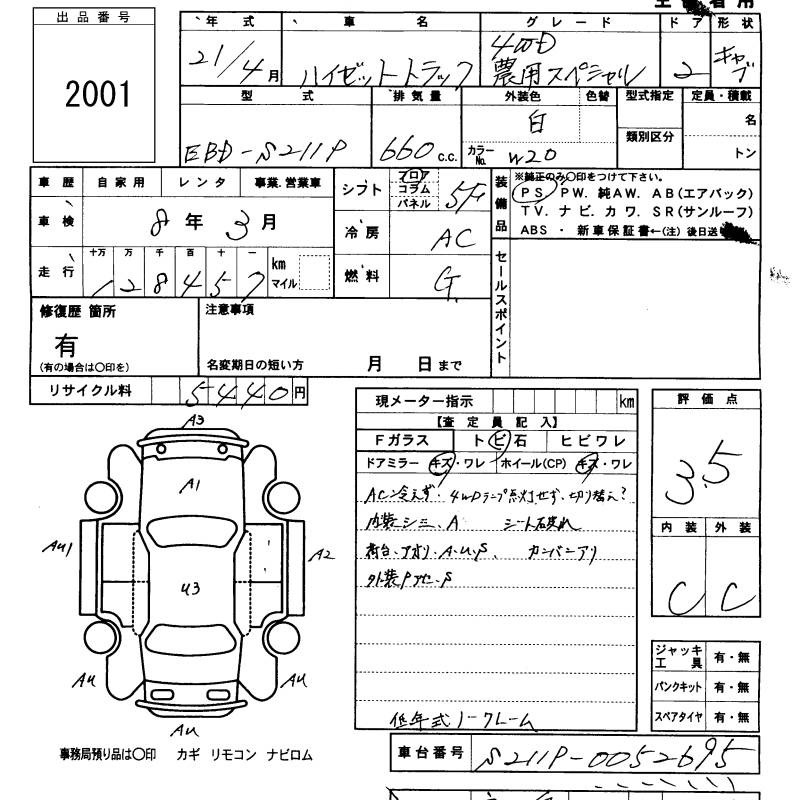 出品番号
2001
年式 車名 グレード ドア 形状
21/4月 ハイゼットトラック 4WD 農用スペシャル 2 キャブ
型式 排気量 外装色 色替 型式指定 定員・積載
EBD-S211P 660 c.c. 白 類別区分 名
カラーNo. W20 トン
車歴 自家用 レンタ 事業.営業車
車検 8年 3月
走行 十万 万 千 百 十 一
128457 km マイル
シフト フロア コラム パネル 5F
冷房 AC
燃料 G
装備品
※純正のみ〇印をつけて下さい。
PS PW. 純AW. AB(エアバック)
TV. ナビ. カワ. SR(サンルーフ)
ABS ・ 新車保証書←(注) 後日送
セールスポイント
修復歴 箇所
有
(有の場合は〇印を)
注意事項
名変期日の短い方 月 日まで
リサイクル料 5440円
現メーター指示 km
【査定員記入】
Fガラス トビ石 ヒビワレ
ドアミラー キズ・ワレ ホイール(CP) キズ・ワレ
AC冷えず・4WDランプ点灯せず、切り替え?
内装シミ、A シート破れ
荷台、アオリ、A.U.S、 カンバンアリ
外装Pアセ、S
低年式ノークレーム
評価点
3.5
内装 外装
C C
ジャッキ工具 有・無
パンクキット 有・無
スペアタイヤ 有・無
車台番号 S211P-0052695
A3
A1
AU1
A2
U3
AU
AU
AU
事務局預り品は〇印 カギ リモコン ナビロム